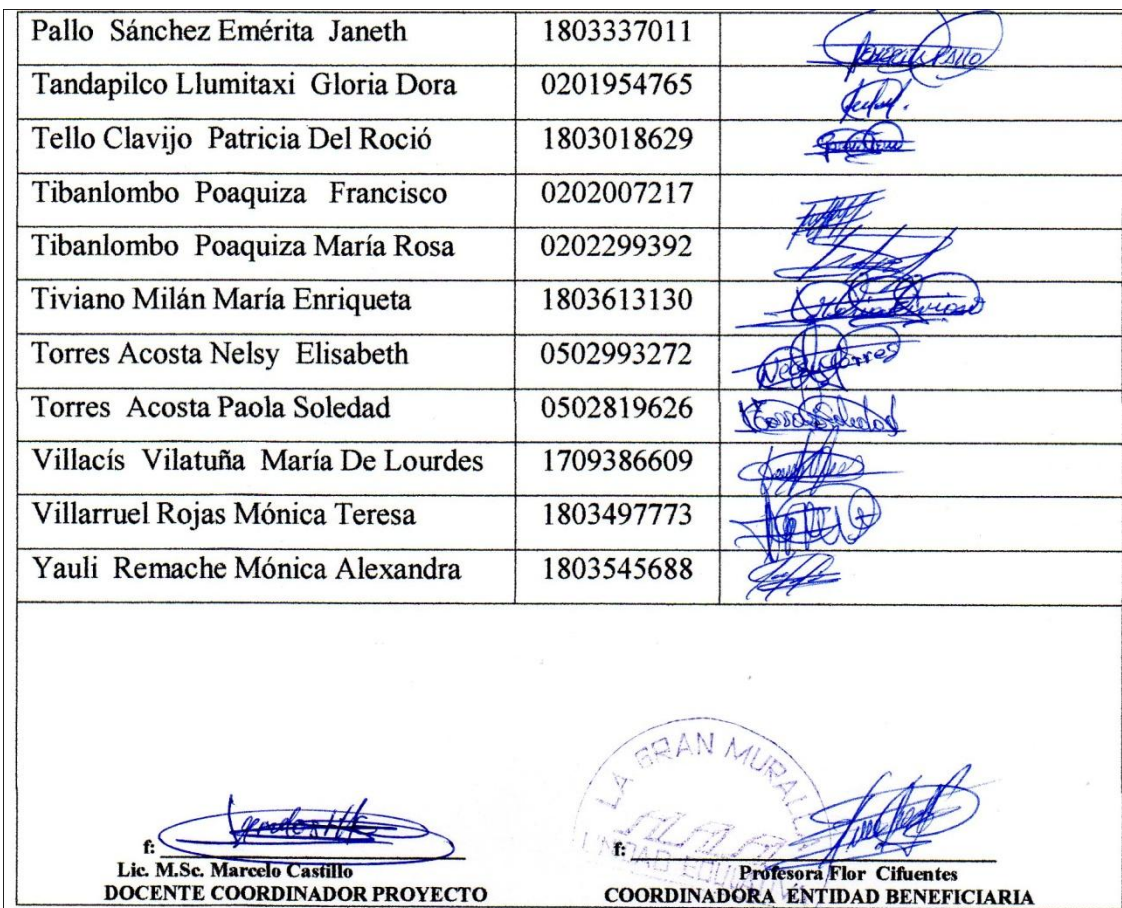 Pallo Sánchez Emérita Janeth 1803337011
Tandapilco Llumitaxi Gloria Dora 0201954765
Tello Clavijo Patricia Del Roció 1803018629
Tibanlombo Poaquiza Francisco 0202007217
Tibanlombo Poaquiza María Rosa 0202299392
Tiviano Milán María Enriqueta 1803613130
Torres Acosta Nelsy Elisabeth 0502993272
Torres Acosta Paola Soledad 0502819626
Villacís Vilatuña María De Lourdes 1709386609
Villarruel Rojas Mónica Teresa 1803497773
Yauli Remache Mónica Alexandra 1803545688
LA GRAN MURALL
UNIDAD
f:
Lic. M.Sc. Marcelo Castillo
DOCENTE COORDINADOR PROYECTO
f:
Profesora Flor Cifuentes
COORDINADORA ENTIDAD BENEFICIARIA